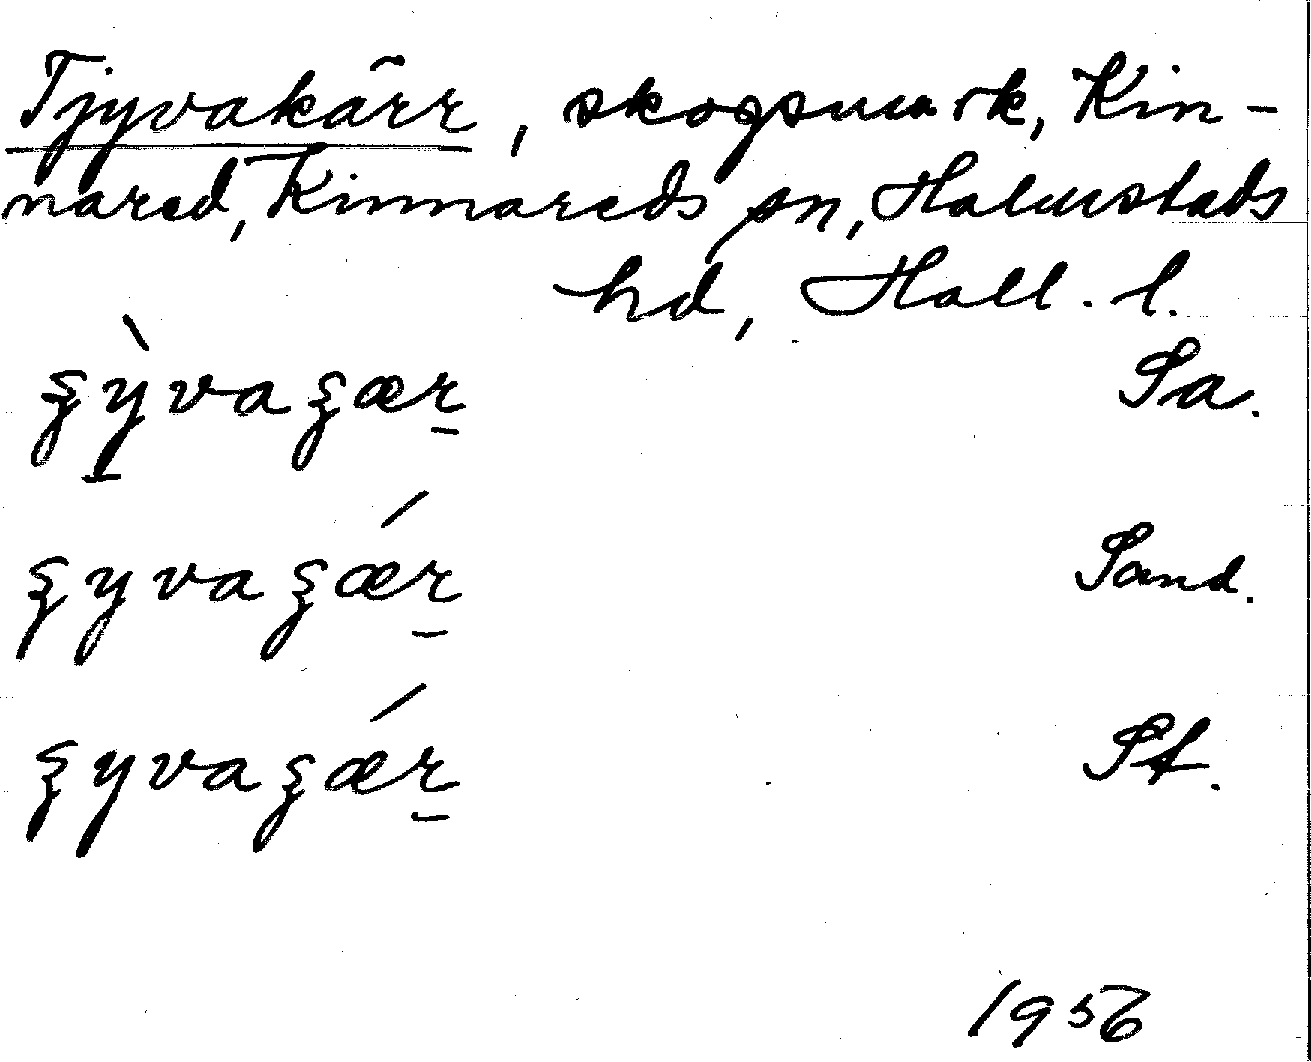 Tjyvakärr, skogsmark, Kin-
nared, Kinnareds sn, Halmstads
hd, Hall. l.
ʒỳvaʒær Sa.
ʒyvaʒǽr Sand.
ʒyvaʒǽr St.
1956